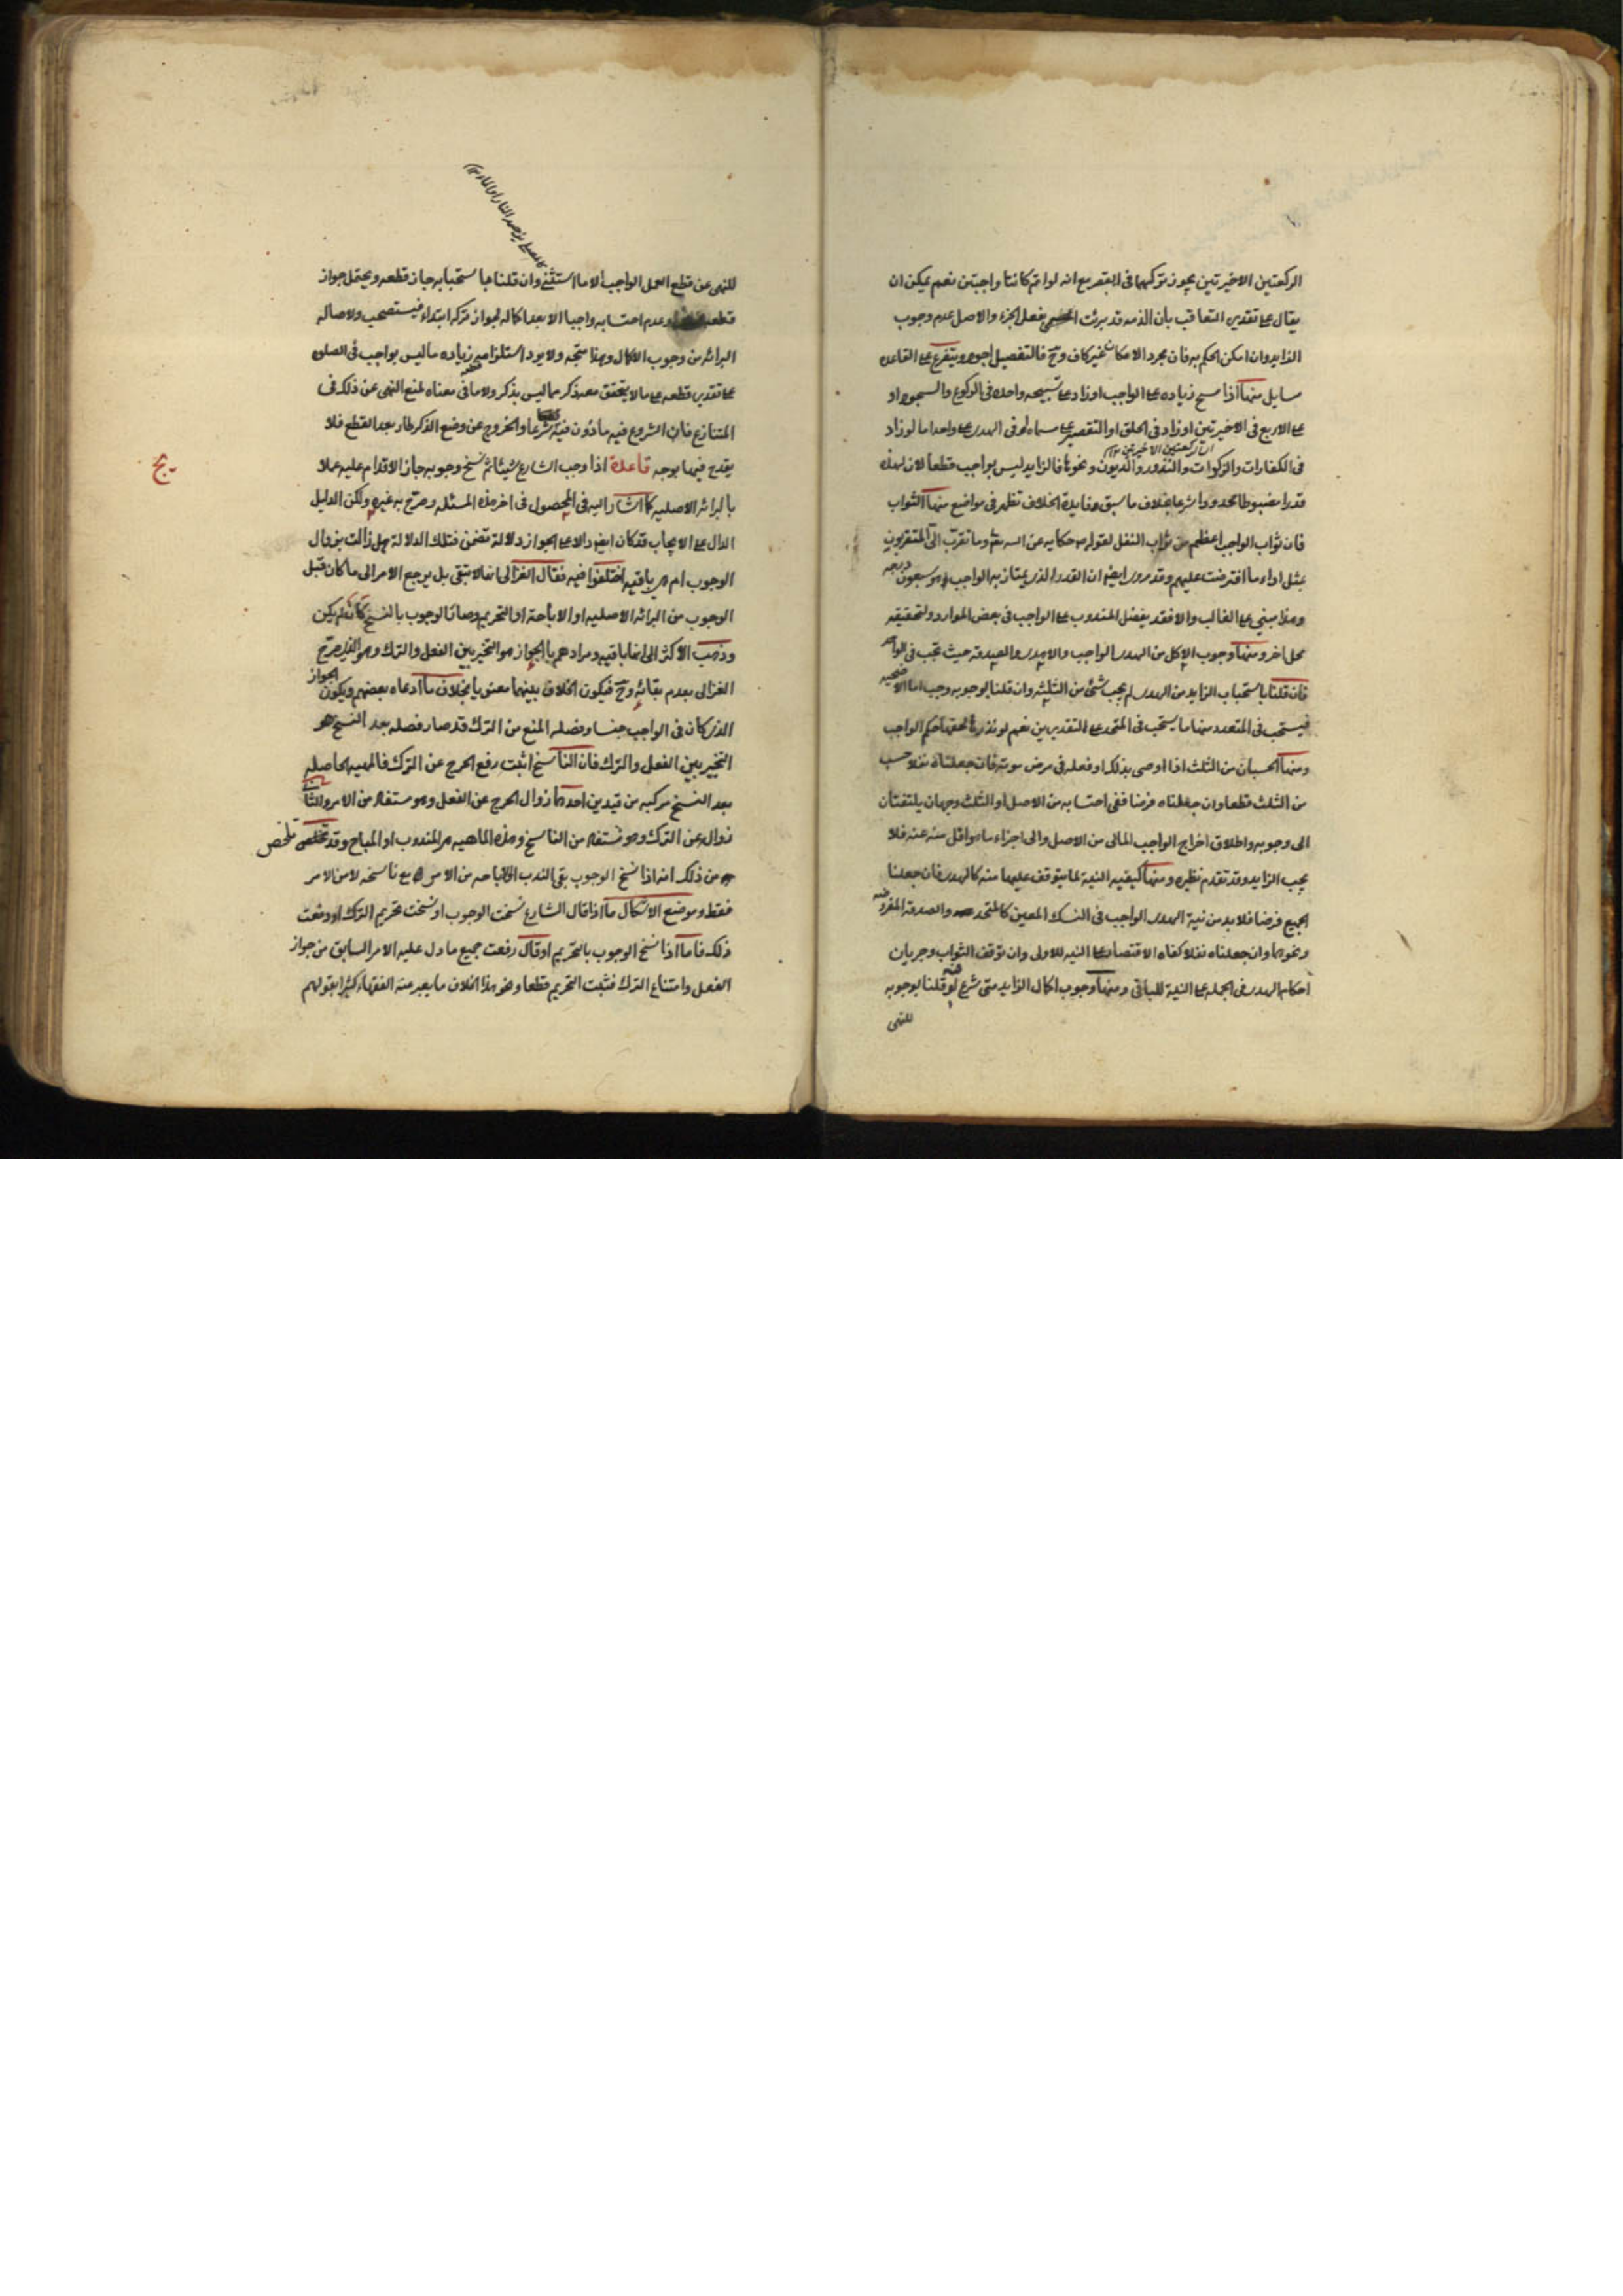 الركعتين الاخيرتين يجوز تركهما في البقع مع انه لو اتم كانتا واجبتين نعم يمكن ان
يقال على تقدير التعاقب بان الذمه قد برئت بفعل الجزء والاصل عدم وجوب
الزايد وان امكن الحكم به فان مجرد الامكان غير كاف وح فالتفصيل اجود ويتفرع على القاعده
مسايل منها اذا مسح زياده على الواجب او زاد على تسبيحه واحده في الركوع والسجود او
على الاربع في الاخيرتين او زاد في الحلق او التقصير على مسماه او في الهدى على واحد اما لو زاد
في الكفارات والزكوات والنذور والديون ونحوها فالزايد ليس بواجب قطعا لان لهذه
قدرا مضبوطا محدودا شرعا بخلاف ما سبق وفايدة الخلاف تظهر في مواضع منها الثواب
فان ثواب الواجب اعظم من ثواب النفل لقوله ص حكايه عن الله تعالى وما تقرب الى المتقربون
بمثل اداء ما افترضت عليهم وقد روى ايضا ان القدر الذى يمتاز به الواجب هو سبعون درجه
وهذا مبني على الغالب والا فقد يفضل المندوب على الواجب في بعض الموارد ولتحقيقه
محل اخر ومنها وجوب الاكل من الهدى الواجب والاهداء والصدقه حيث تجب في الواحد
فان قلنا باستحباب الزايد من الهدى لم يجب شئ من الثلثه وان قلنا بوجوبه وجب اما الاضحيه
فيستحب في المتعدد منها ما يستحب في المتحد على التقديرين نعم لو نذرها لحقها حكم الواجب
ومنها الحسبان من الثلث اذا اوصى بذلك او فعله في مرض موته فان جعلناه نفلا حسب
من الثلث قطعا وان جعلناه فرضا ففى احتسابه من الاصل او الثلث وجهان يلتفتان
الى وجوبه واطلاق اخراج الواجب المالى من الاصل والى اجزاء ما هو اقل منه عنه فلا
يجب الزايد وقد تقدم نظيره ومنها كيفيه النية لما يتوقف عليها منه كالهدى فان جعلنا
الجميع فرضا فلا بد من نية الهدى الواجب في النسك المعين كالمتحد والصدقه المفروضه
ونحوهما وان جعلناه نفلا كفاه الاقتصار على النيه للاولى وان توقف الثواب وجريان
احكام الهدى في الجمله على النية للباقى ومنها وجوب اكمال الزايد متى شرع فيه لو قلنا بوجوبه
للنهى
للنهى عن قطع العمل الواجب الا ما استثنى وان قلنا باستحبابه جاز قطعه ويحتمل جواز
قطعه وعدم احتسابه واجبا الا بعد اكماله لجواز تركه ابتداء فيستصحب ولاصاله
البرائه من وجوب الاكمال وهذا متجه ولا يرد استلزامه زياده ما ليس بواجب في الصلوه
على تقدير قطعه على ما لا يتحقق معه ذكر مما ليس بذكر ولا ما في معناه لمنع النهى عن ذلك في
المتنازع فان الشروع فيه ماذون فيه شرعا والخروج عن وضع الذكر طار بعد القطع فلا
يقدح فيما يوجه قاعدة اذا وجب الشارع شيئا ثم نسخ وجوبه جاز الاقدام عليه عملا
بالبرائه الاصليه كما اشار اليه في المحصول في اخر هذه المسئله وصرح به غيره ولكن الدليل
الدال على الايجاب قد كان ايضا دالا على الجواز دلالة تضمن فتلك الدلالة هل زالت بزوال
الوجوب ام هى باقيه اختلفوا فيه فقال الغزالى انها لا تبقى بل يرجع الامر الى ما كان قبل
الوجوب من البرائه الاصليه او الاباحة او التحريم وصار الوجوب بالنسخ كان لم يكن
وذهب الاكثر الى انها باقيه ومرادهم بالجواز هو التخيير بين الفعل والترك وهو الذى صرح
الغزالى بعدم بقائه وح فيكون الخلاف بينهما معنويا بخلاف ما ادعاه بعضهم ويكون الجواز
الذى كان في الواجب جنسا وفصله المنع من الترك قد صار فصله بعد النسخ هو
التخيير بين الفعل والترك فان الناسخ اثبت رفع الحرج عن الترك فالمهيه الحاصله
بعد النسخ مركبه من قيدين احدهما زوال الحرج عن الفعل وهو مستفاد من الامر والثانى
زواله عن الترك وهو مستفاد من الناسخ وهذه الماهيه هى المندوب او المباح وقد تلخص
من ذلك انه اذا نسخ الوجوب بقى الندب او الاباحه من الامر مع ناسخه لا من الامر
فقط وموضع الاشكال ما اذا قال الشارع نسخت الوجوب او نسخت تحريم الترك او رفعت
ذلك فاما اذا نسخ الوجوب بالتحريم او قال رفعت جميع ما دل عليه الامر السابق من جواز
الفعل وامتناع الترك فثبت التحريم قطعا ونحو هذا الخلاف ما يعبر عنه الفقهاء كثيرا بقولهم